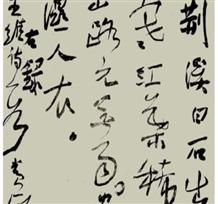 荆溪白石出
天寒红叶稀
山路元无雨
湿人衣
右录
王维诗一首